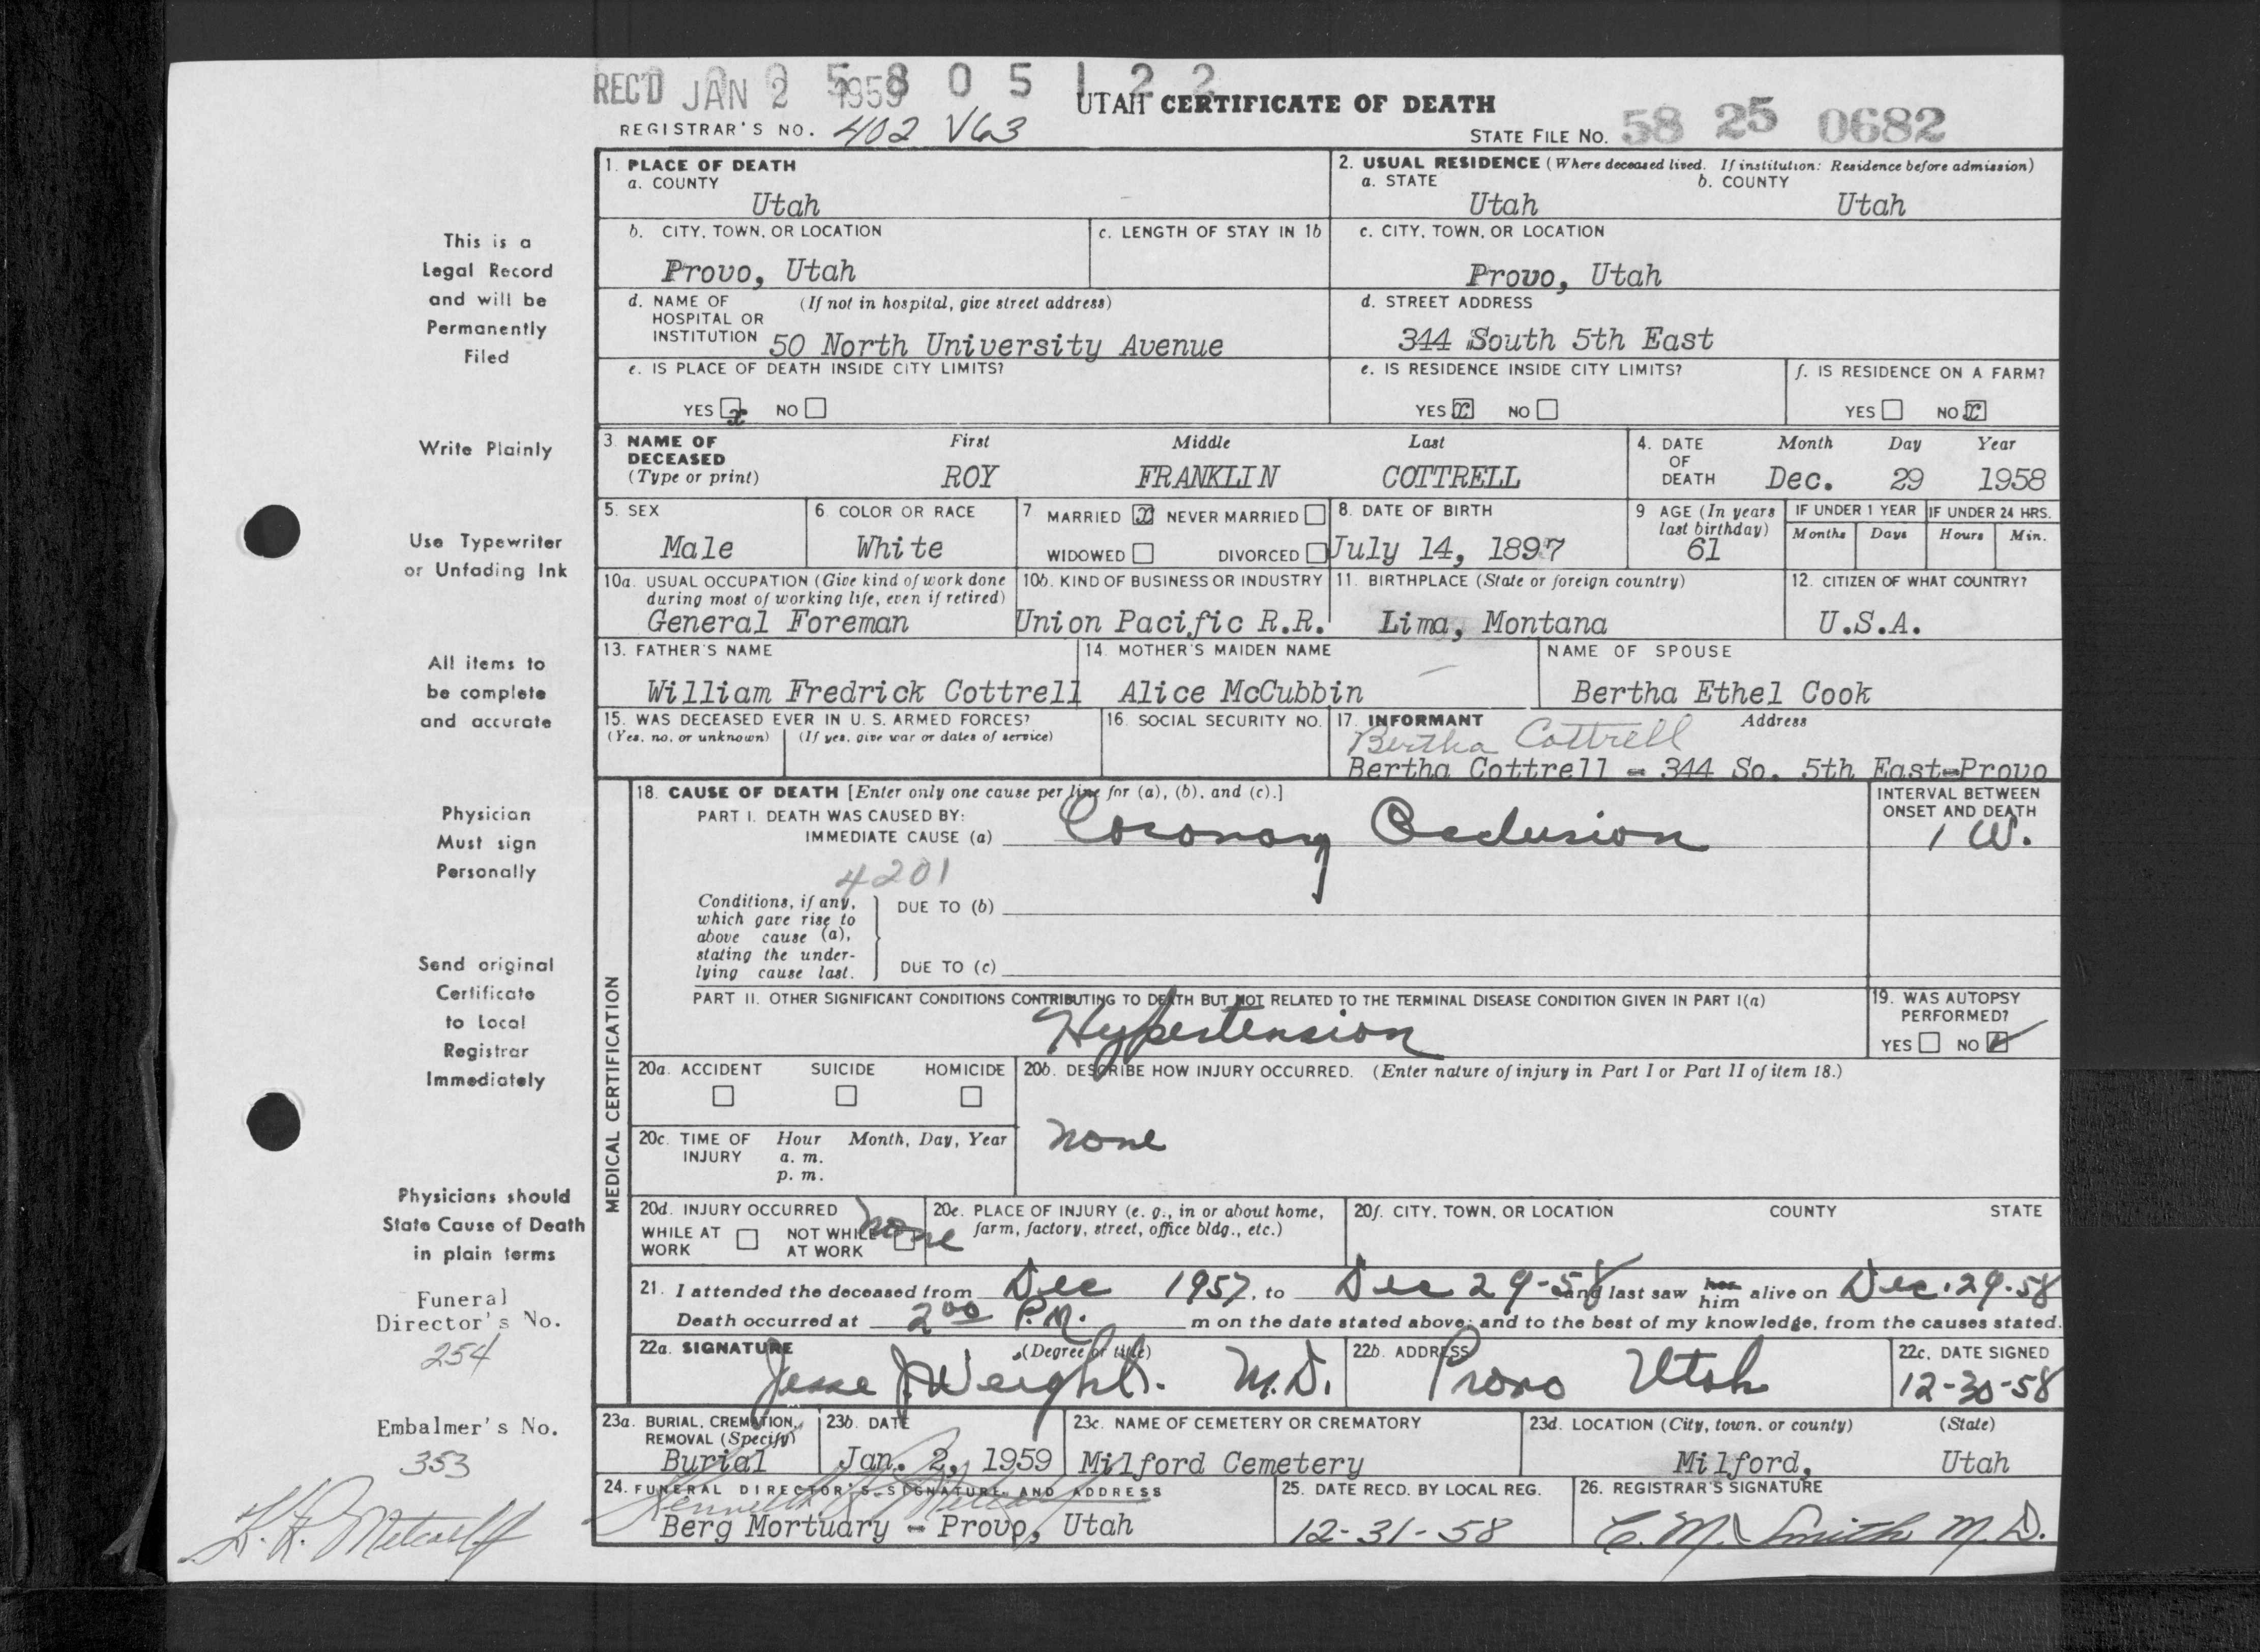 REC'D JAN 2 1959 5 8 0 5 1 2 2
UTAH CERTIFICATE OF DEATH
REGISTRAR'S NO. 402 V63
STATE FILE NO. 58 25 0682
This is a
Legal Record
and will be
Permanently
Filed
Write Plainly
Use Typewriter
or Unfading Ink
All items to
be complete
and accurate
Physician
Must sign
Personally
Send original
Certificate
to Local
Registrar
Immediately
Physicians should
State Cause of Death
in plain terms
Funeral
Director's No.
254
Embalmer's No.
353
K. K. Metcalf
1. PLACE OF DEATH
a. COUNTY
Utah
2. USUAL RESIDENCE (Where deceased lived. If institution: Residence before admission)
a. STATE b. COUNTY
Utah Utah
b. CITY, TOWN, OR LOCATION
Provo, Utah
c. LENGTH OF STAY IN 1b
c. CITY, TOWN, OR LOCATION
Provo, Utah
d. NAME OF (If not in hospital, give street address)
HOSPITAL OR
INSTITUTION 50 North University Avenue
d. STREET ADDRESS
344 South 5th East
e. IS PLACE OF DEATH INSIDE CITY LIMITS?
YES x NO
e. IS RESIDENCE INSIDE CITY LIMITS?
YES x NO
f. IS RESIDENCE ON A FARM?
YES NO x
3. NAME OF DECEASED First Middle Last
(Type or print) ROY FRANKLIN COTTRELL
4. DATE OF DEATH Month Day Year
Dec. 29 1958
5. SEX
Male
6. COLOR OR RACE
White
7 MARRIED x NEVER MARRIED
WIDOWED DIVORCED
8. DATE OF BIRTH
July 14, 1897
9 AGE (In years last birthday)
61
IF UNDER 1 YEAR IF UNDER 24 HRS.
Months Days Hours Min.
10a. USUAL OCCUPATION (Give kind of work done
during most of working life, even if retired)
General Foreman
10b. KIND OF BUSINESS OR INDUSTRY
Union Pacific R.R.
11. BIRTHPLACE (State or foreign country)
Lima, Montana
12. CITIZEN OF WHAT COUNTRY?
U.S.A.
13. FATHER'S NAME
William Fredrick Cottrell
14. MOTHER'S MAIDEN NAME
Alice McCubbin
NAME OF SPOUSE
Bertha Ethel Cook
15. WAS DECEASED EVER IN U. S. ARMED FORCES?
(Yes, no, or unknown) (If yes, give war or dates of service)
16. SOCIAL SECURITY NO.
17. INFORMANT Address
Bertha Cottrell
Bertha Cottrell - 344 So. 5th East-Provo
MEDICAL CERTIFICATION
18. CAUSE OF DEATH [Enter only one cause per line for (a), (b), and (c).]
PART I. DEATH WAS CAUSED BY:
IMMEDIATE CAUSE (a) Coronary Occlusion
INTERVAL BETWEEN
ONSET AND DEATH
1 W.
4201
Conditions, if any,
which gave rise to
above cause (a),
stating the under-
lying cause last.
DUE TO (b)
DUE TO (c)
PART II. OTHER SIGNIFICANT CONDITIONS CONTRIBUTING TO DEATH BUT NOT RELATED TO THE TERMINAL DISEASE CONDITION GIVEN IN PART I(a)
Hypertension
19. WAS AUTOPSY
PERFORMED?
YES NO
20a. ACCIDENT SUICIDE HOMICIDE
20b. DESCRIBE HOW INJURY OCCURRED. (Enter nature of injury in Part I or Part II of item 18.)
none
20c. TIME OF INJURY Hour Month, Day, Year
a. m.
p. m.
20d. INJURY OCCURRED
WHILE AT WORK NOT WHILE AT WORK
none
20e. PLACE OF INJURY (e. g., in or about home,
farm, factory, street, office bldg., etc.)
20f. CITY, TOWN, OR LOCATION COUNTY STATE
21. I attended the deceased from Dec 1957, to Dec 29-58 and last saw her him alive on Dec. 29-58
Death occurred at 2 00 P.M. m on the date stated above; and to the best of my knowledge, from the causes stated.
22a. SIGNATURE (Degree or title)
Jesse J. Weight. M.D.
22b. ADDRESS
Provo Utah
22c. DATE SIGNED
12-30-58
23a. BURIAL, CREMATION,
REMOVAL (Specify)
Burial
23b. DATE
Jan. 2, 1959
23c. NAME OF CEMETERY OR CREMATORY
Milford Cemetery
23d. LOCATION (City, town, or county) (State)
Milford, Utah
24. FUNERAL DIRECTOR'S SIGNATURE AND ADDRESS
Berg Mortuary - Provo, Utah
25. DATE RECD. BY LOCAL REG.
12-31-58
26. REGISTRAR'S SIGNATURE
C. M. Smith M.D.